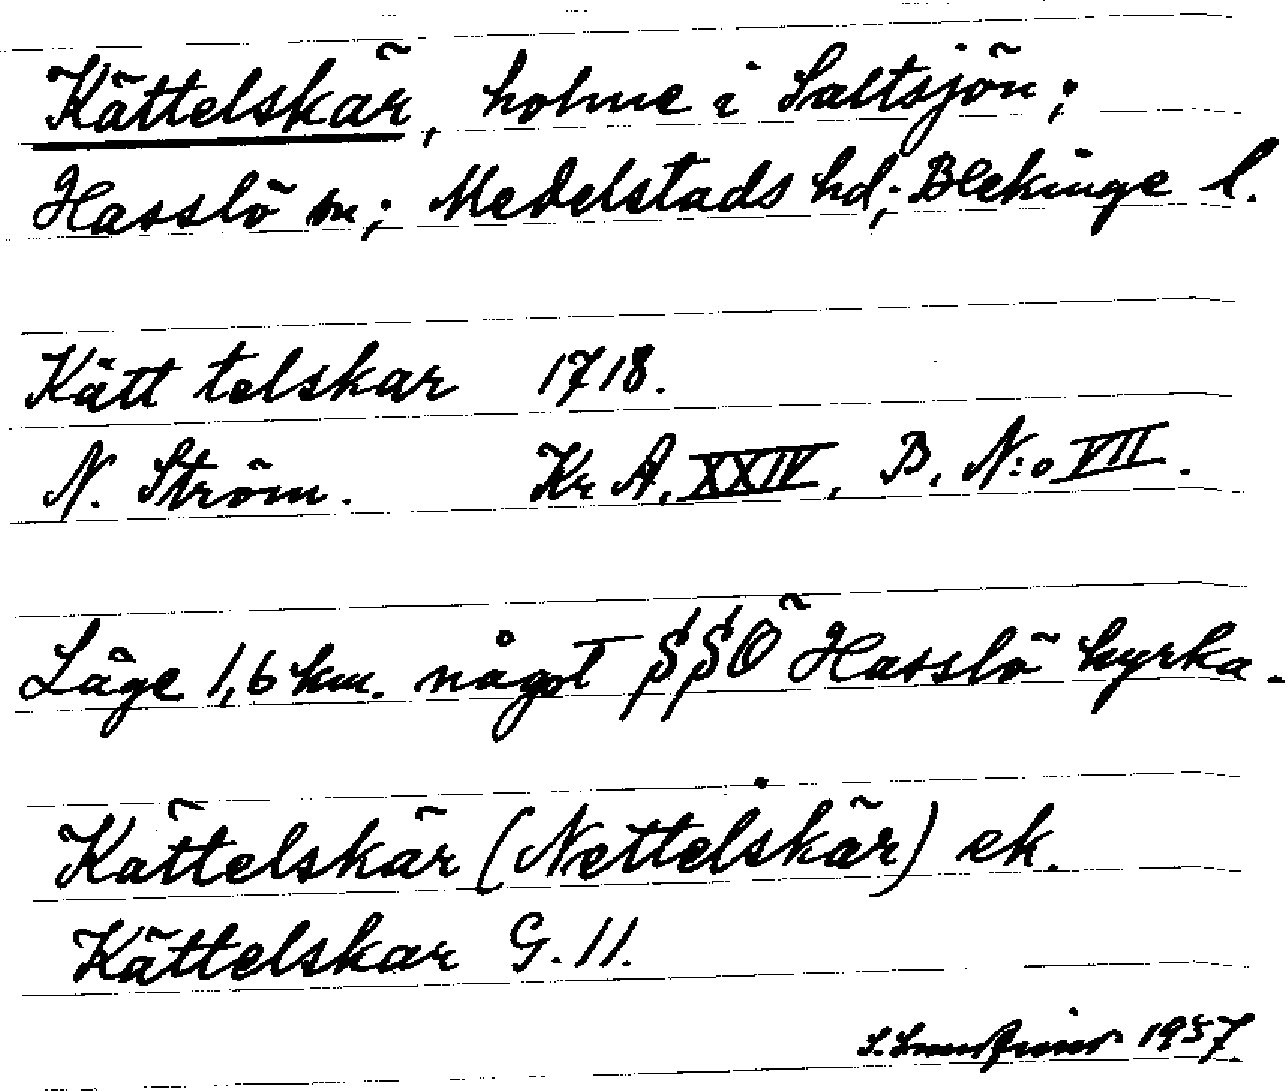 Kättelskär, holme i Saltsjön;
Hasslö sn; Medelstads hd; Blekinge l.
Kätt telskar 1718.
N. Ström. Kr A, XXIV, B, N:o VII.
Läge 1,6 km. något SSÖ Hasslö kyrka.
Kättelskär (Nettelskär) ek.
Kättelskar G. 11.
1957.